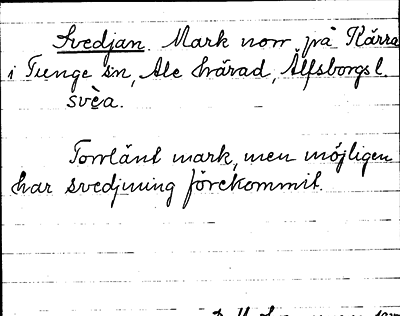 Svedjan. Mark norr på Kärra
i Tunge sn, Ale härad, Älfsborgs l.
svèa.
Torrlänt mark, men möjligen
har svedjning förekommit.